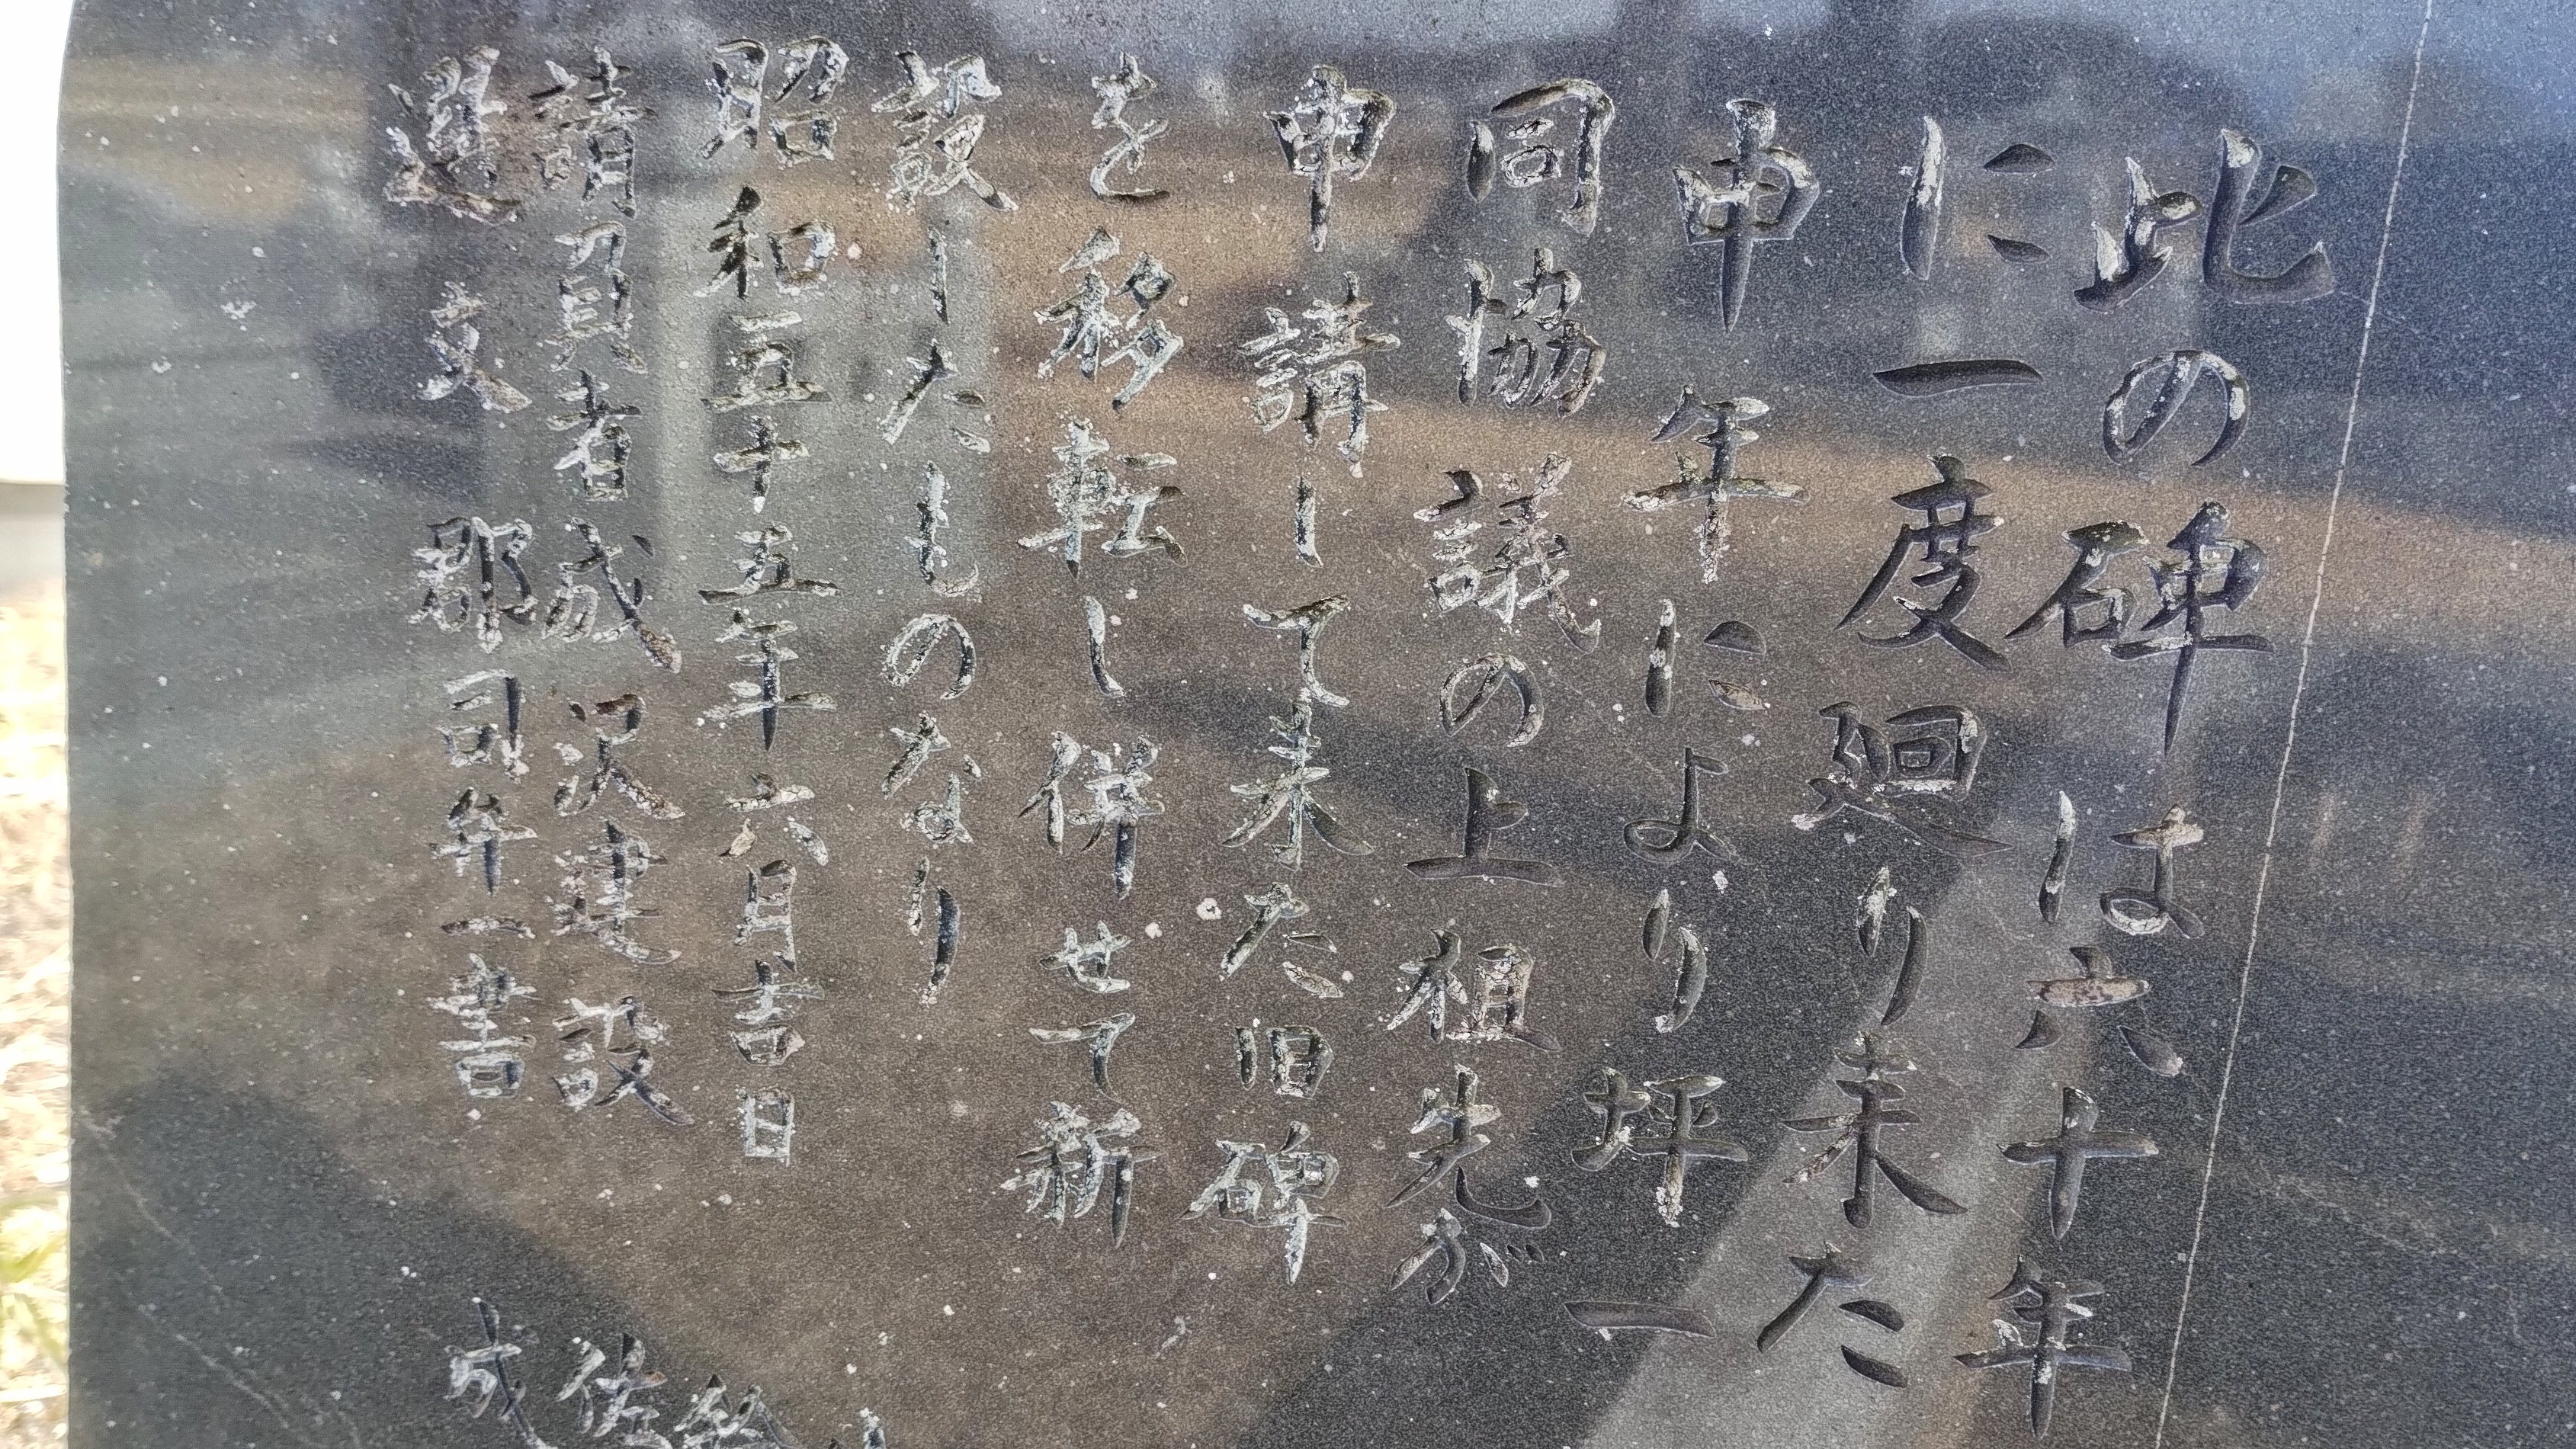 此の碑は六十年
に一度廻り来た
申年により坪一
同協議の上祖先が
申講して来た旧碑
を移転し併せて新
設したものなり
昭和五十五年六月吉日
請負者成沢建設
選文 郡司年一書
佐
成